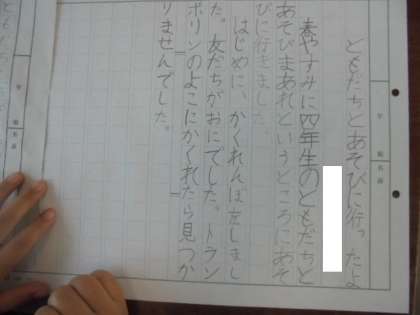 ともだちとあそびに行ったよ
春やすみに四年生のともだちと
あそびまあれというところにあそ
びに行きました。
はじめに、かくれんぼをしまし
た。友だちがおにでした。トラン
ポリンのよこにかくれたら見つか
りませんでした。
年 組 名前